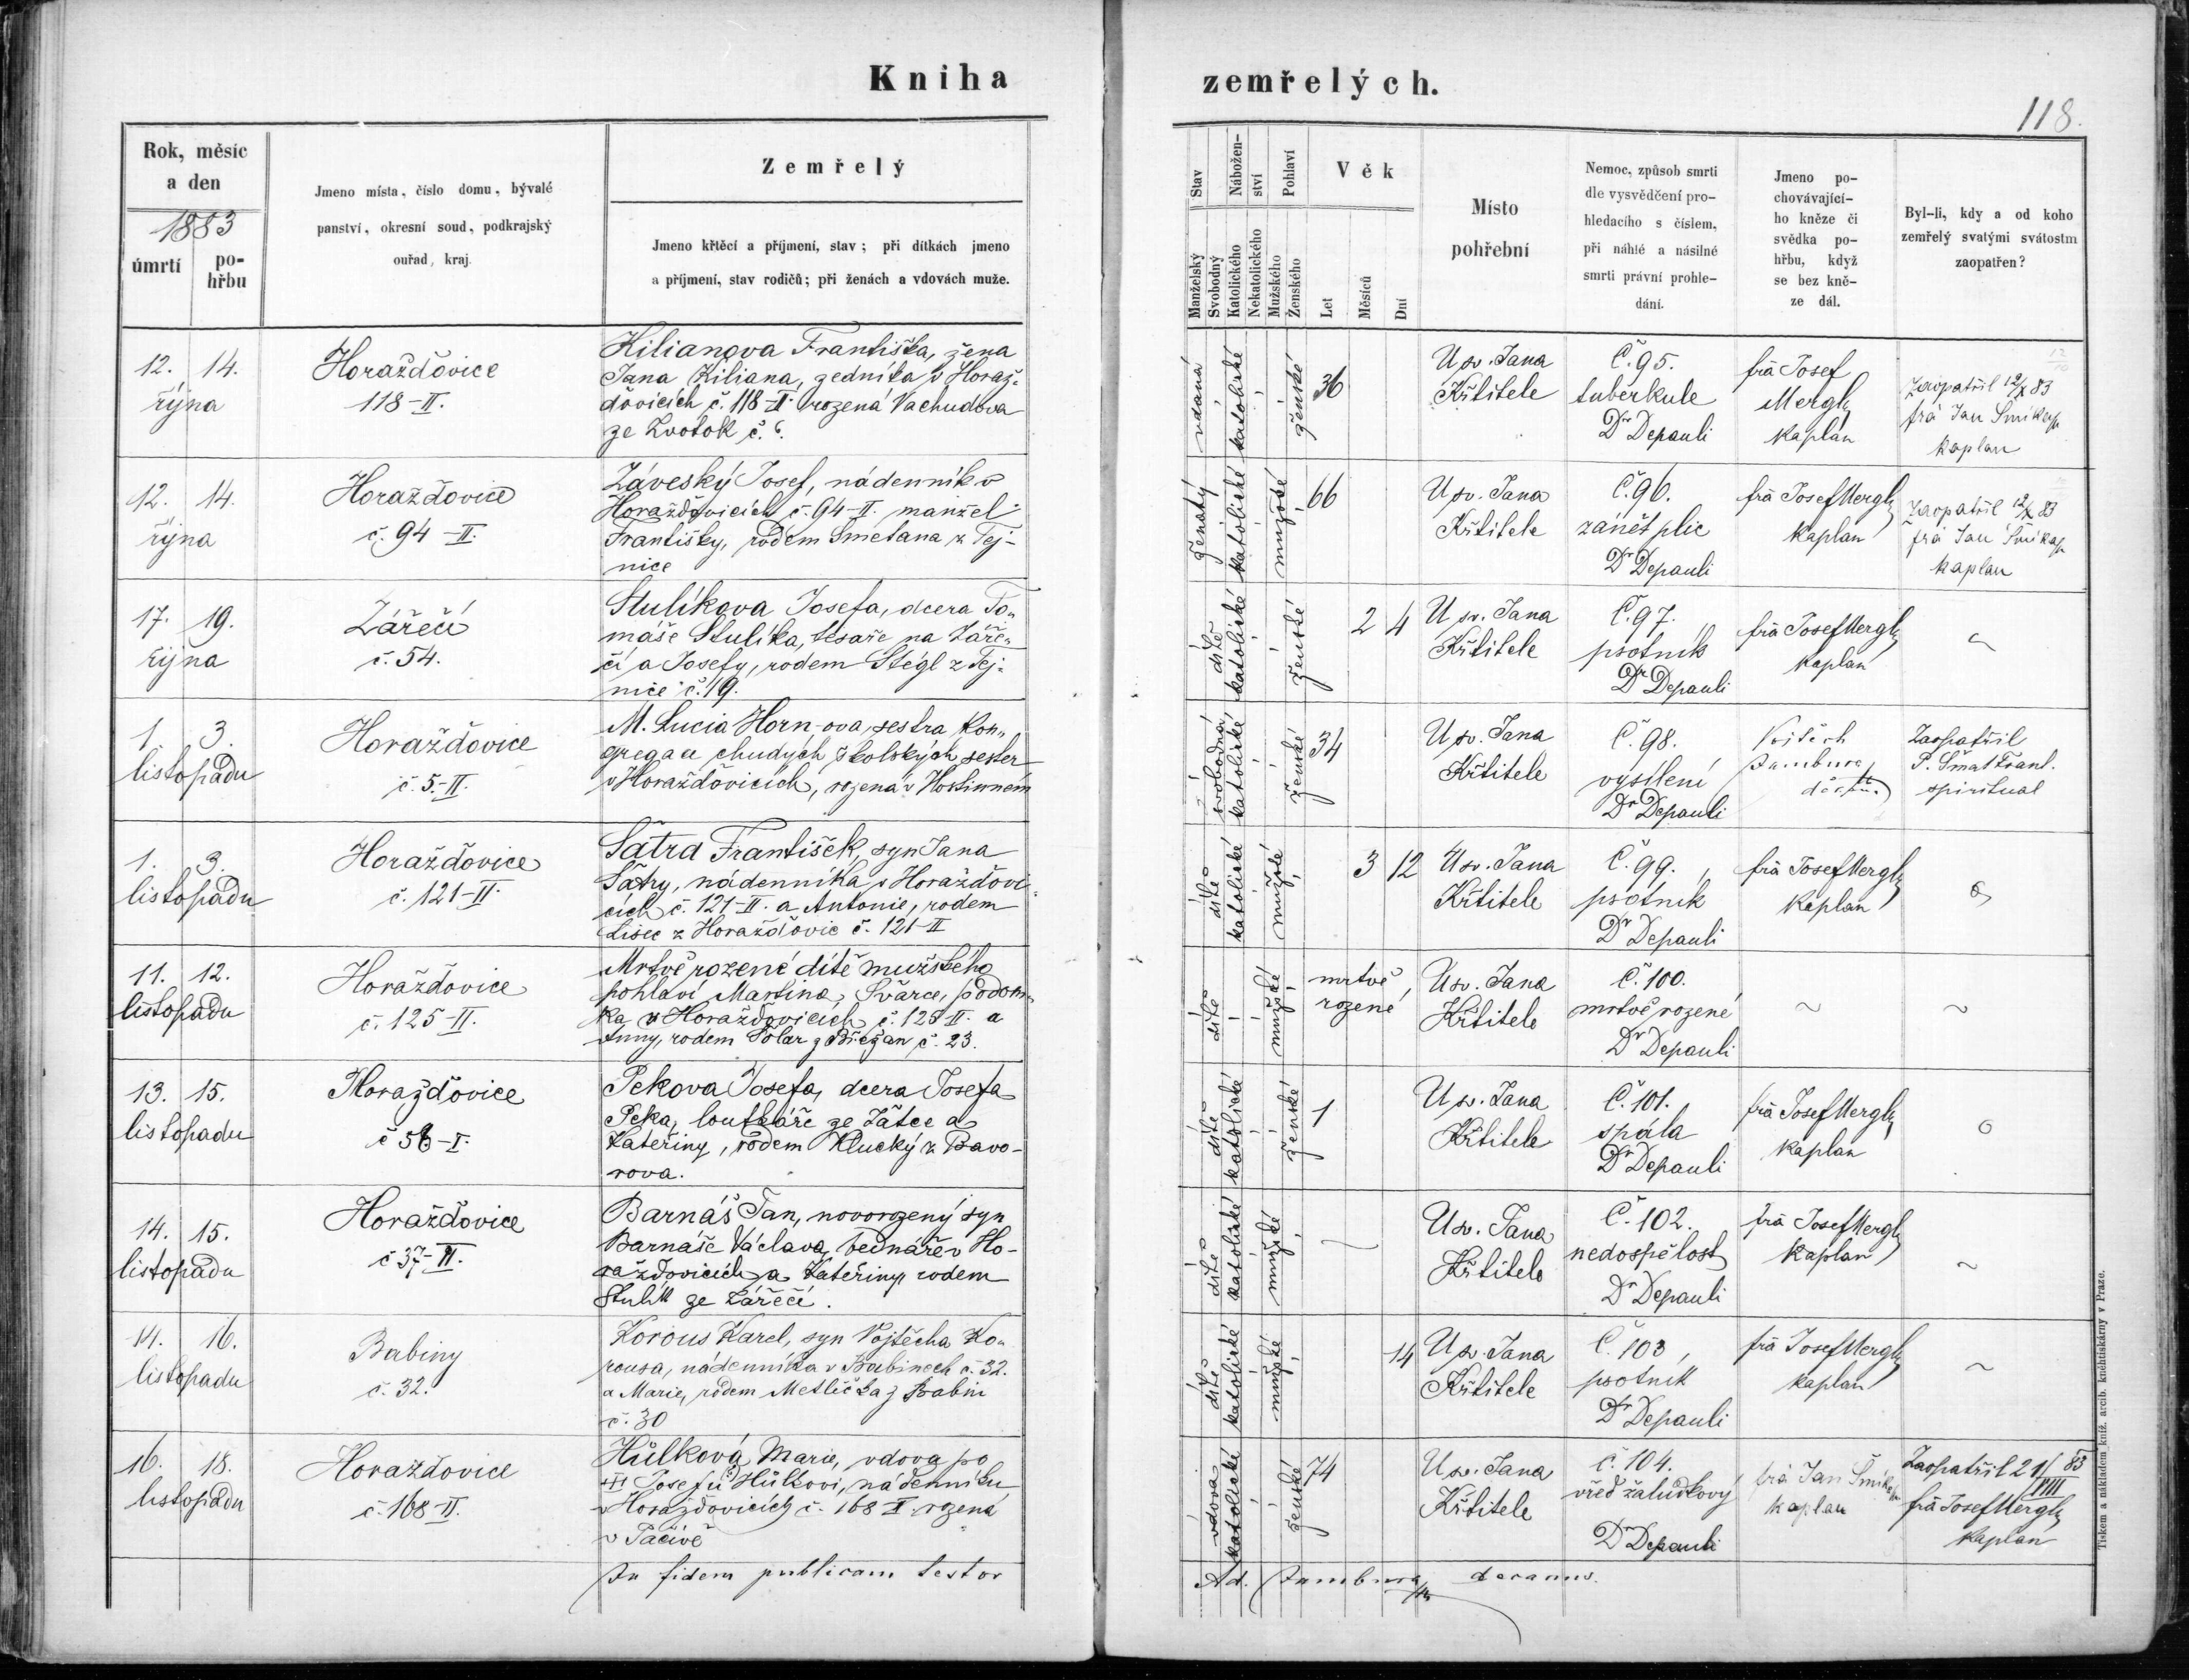 Kniha zemřelých.
118.
Rok, měsíc a den
1883
úmrtí
pohřbu
Jmeno místa, číslo domu, bývalé
panství, okresní soud, podkrajský
ouřad, kraj.
Zemřelý
Jmeno křtěcí a příjmení, stav; při dítkách jmeno
a příjmení, stav rodičů; při ženách a vdovách muže.
Stav
Manželský
Svobodný
Nábožen-
ství
Katolického
Nekatolického
Pohlaví
Mužského
Ženského
Věk
Let
Měsíců
Dní
Místo
pohřební
Nemoc, způsob smrti
dle vysvědčení pro-
hledacího s číslem,
při náhlé a násilné
smrti právní prohle-
dání.
Jmeno po-
chovávající-
ho kněze či
svědka po-
hřbu, když
se bez kně-
ze dál.
Byl-li, kdy a od koho
zemřelý svatými svátostm
zaopatřen?
12. 14.
října
Horažďovice
118-II.
Kilianova Františka, žena
Jana Kiliana, zedníka v Horaž-
ďovicích č. 118-II. rozená Vachudova
ze Zvotok č. 6.
vdaná
katolické
ženské
36
U sv. Jana
Křtitele
Č. 95.
tuberkule
Dr Depauli
frà Josef
Mergl
kaplán
Zaopatřil 12/X 83
frà Jan
kaplan
12. 14.
října
Horažďovice
č. 94-II.
Záveský Josef, nádenník v
Horažďovicích č. 94-II. manžel
Františky, rodem Smetana z Tej-
nice
ženatý
katolické
mužské
66
U sv. Jana
Křtitele
Č. 96.
zánět plic
Dr Depauli
frà Josef Mergl
kaplan
Zaopatřil 12/X 83
frà Jan
kaplan
17. 19.
října
Zářečí
č. 54.
Stulíkova Josefa, dcera To-
máše Stulíka, tesaře na Záře-
čí a Josefy, rodem Stégl z Tej-
nice č. 19.
dítě
katolické
ženské
2 4
U sv. Jana
Křtitele
Č. 97.
psotník
Dr Depauli
frà Josef Mergl
kaplan
1. 3.
listopadu
Horažďovice
č. 5-II.
M. Lucia Horn-ova, sestra kon-
gregace chudých školských sester
v Horažďovicích, rozená v Hostinném
svobodná
katolické
ženské
34
U sv. Jana
Křtitele
Č. 98.
vysílení
Dr Depauli
Vojtěch
Jambura
děkan
Zaopatřil
P. Šmat Frant.
spiritual
1. 3.
listopadu
Horažďovice
č. 121-II.
Šatra František, syn Jana
Šatry, nádenníka v Horažďovi-
cích č. 121-II. a Antonie, rodem
Lisec z Horažďovic č. 121-II
dítě
katolické
mužské
3 12
U sv. Jana
Křtitele
Č. 99.
psotník
Dr Depauli
frà Josef Mergl
kaplan
11. 12.
listopadu
Horažďovice
č. 125-II.
Mrtvě rozené dítě mužského
pohlaví Martina Švarce, podom-
ka v Horažďovicích č. 125-II. a
Anny, rodem Solar z Břežan č. 23.
dítě
mužské
mrtvě
rozené
U sv. Jana
Křtitele
Č. 100.
mrtvě rozené
Dr Depauli
13. 15.
listopadu
Horažďovice
č 56-I.
Pekova Josefa, dcera Josefa
Peka, loutkáře ze Žátce a
Kateřiny, rodem Klucký z Bavo-
rova.
dítě
katolické
ženské
1
U sv. Jana
Křtitele
Č. 101.
spála
Dr Depauli
frà Josef Mergl
kaplan
14. 15.
listopadu
Horažďovice
č 37-II.
Barnáš Jan, novorozený syn
Barnáše Václava, bednáře v Ho-
ražďovicích a Kateřiny, rodem
Stulík ze Zářečí.
dítě
katolické
mužské
U sv. Jana
Křtitele
Č. 102.
nedospělost
Dr Depauli
frà Josef Mergl
kaplan
14. 16.
listopadu
Babiny
č. 32.
Korous Karel, syn Vojtěcha Ko-
rousa, nádenníka v Babinech č. 32.
a Marie, rodem Metlička z Babin
č. 30
dítě
katolické
mužské
14
U sv. Jana
Křtitele
Č. 103
psotník
Dr Depauli
frà Josef Mergl
kaplan
16. 18.
listopadu
Horažďovice
č. 168-II.
Hůlková Marie, vdova po
Josefu Hůlkovi, nádenníku
v Horažďovicích č. 168-II. rozená
v Pačivě
vdova
katolické
ženské
74
U sv. Jana
Křtitele
č. 104.
vřed žaludkový
Dr Depauli
frà Jan
kaplan
Zaopatřil 21/VIII 83
frà Josef Mergl
kaplan
In fidem publicam testor
Ad. Jambura decanus.
Tiskem a nákladem kníž. arcib. knihtiskárny v Praze.